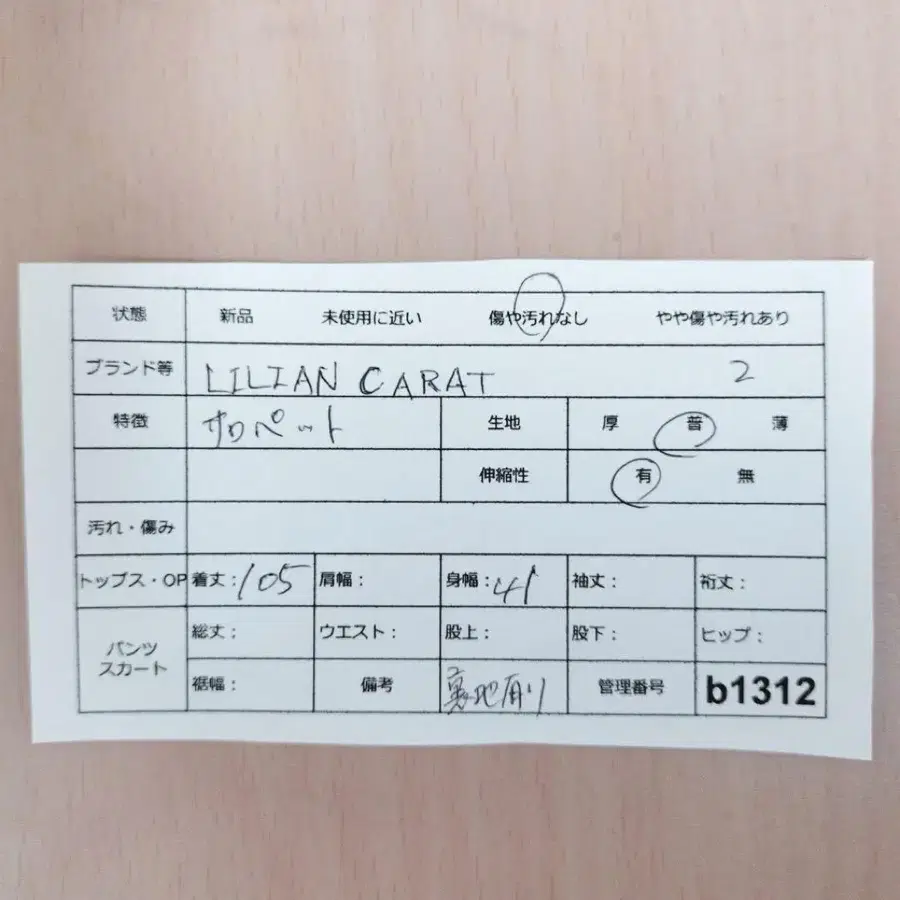 状態 新品 未使用に近い 傷や汚れなし やや傷や汚れあり
ブランド等 LILIAN CARAT 2
特徴 サロペット 生地 厚 普 薄
伸縮性 有 無
汚れ・傷み
トップス・OP 着丈：105 肩幅： 身幅：41 袖丈： 裄丈：
パンツ スカート 総丈： ウエスト： 股上： 股下： ヒップ：
裾幅： 備考 裏地有り 管理番号 b1312